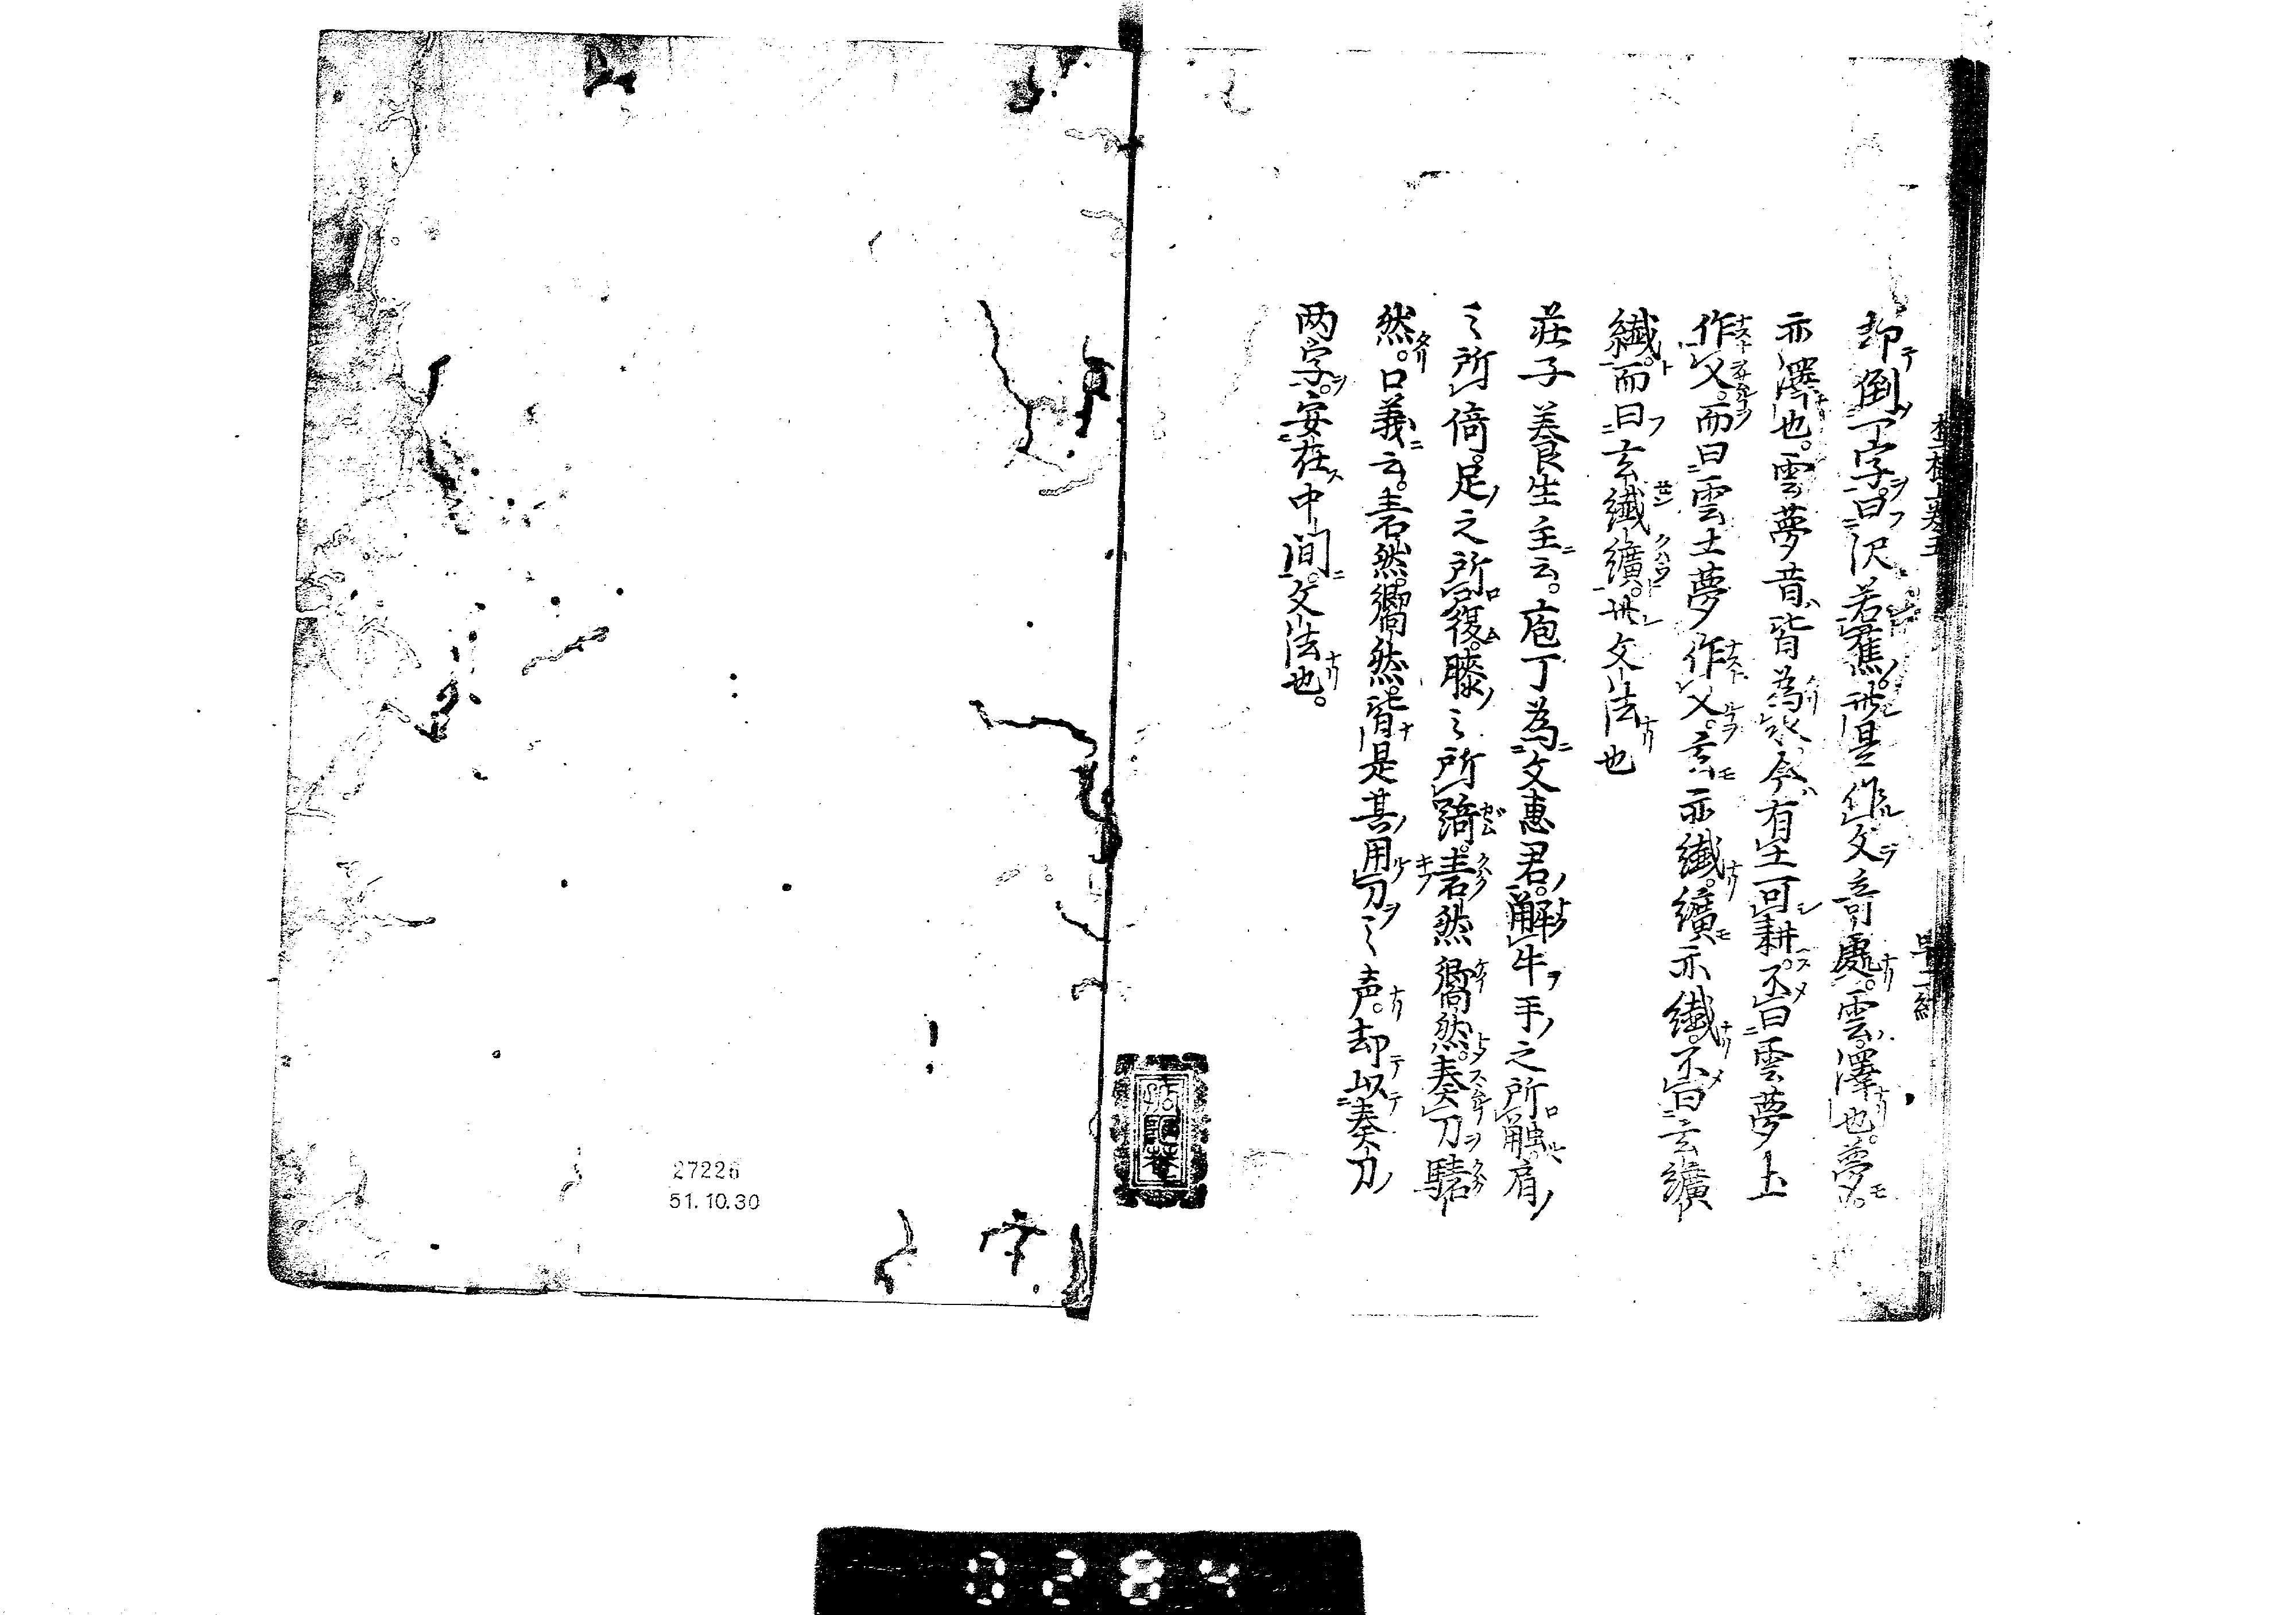 却倒一字曰沢若蕉此是作文奇處雲澤也夢
亦澤也雲夢昔皆為水今有土可耕不曰雲夢土
作乂而曰雲土夢作乂玄亦纎纊亦纎不曰玄纊
纎而曰玄纎纊此文法也
莊子養生主云庖丁為文惠君解牛手之所触肩
之所倚足之所履膝之所踦砉然嚮然奏刀騞
然口義云砉然嚮然皆是其用刀之声却以奏刀
两字安在中间文法也
27226
51.10.30
0284